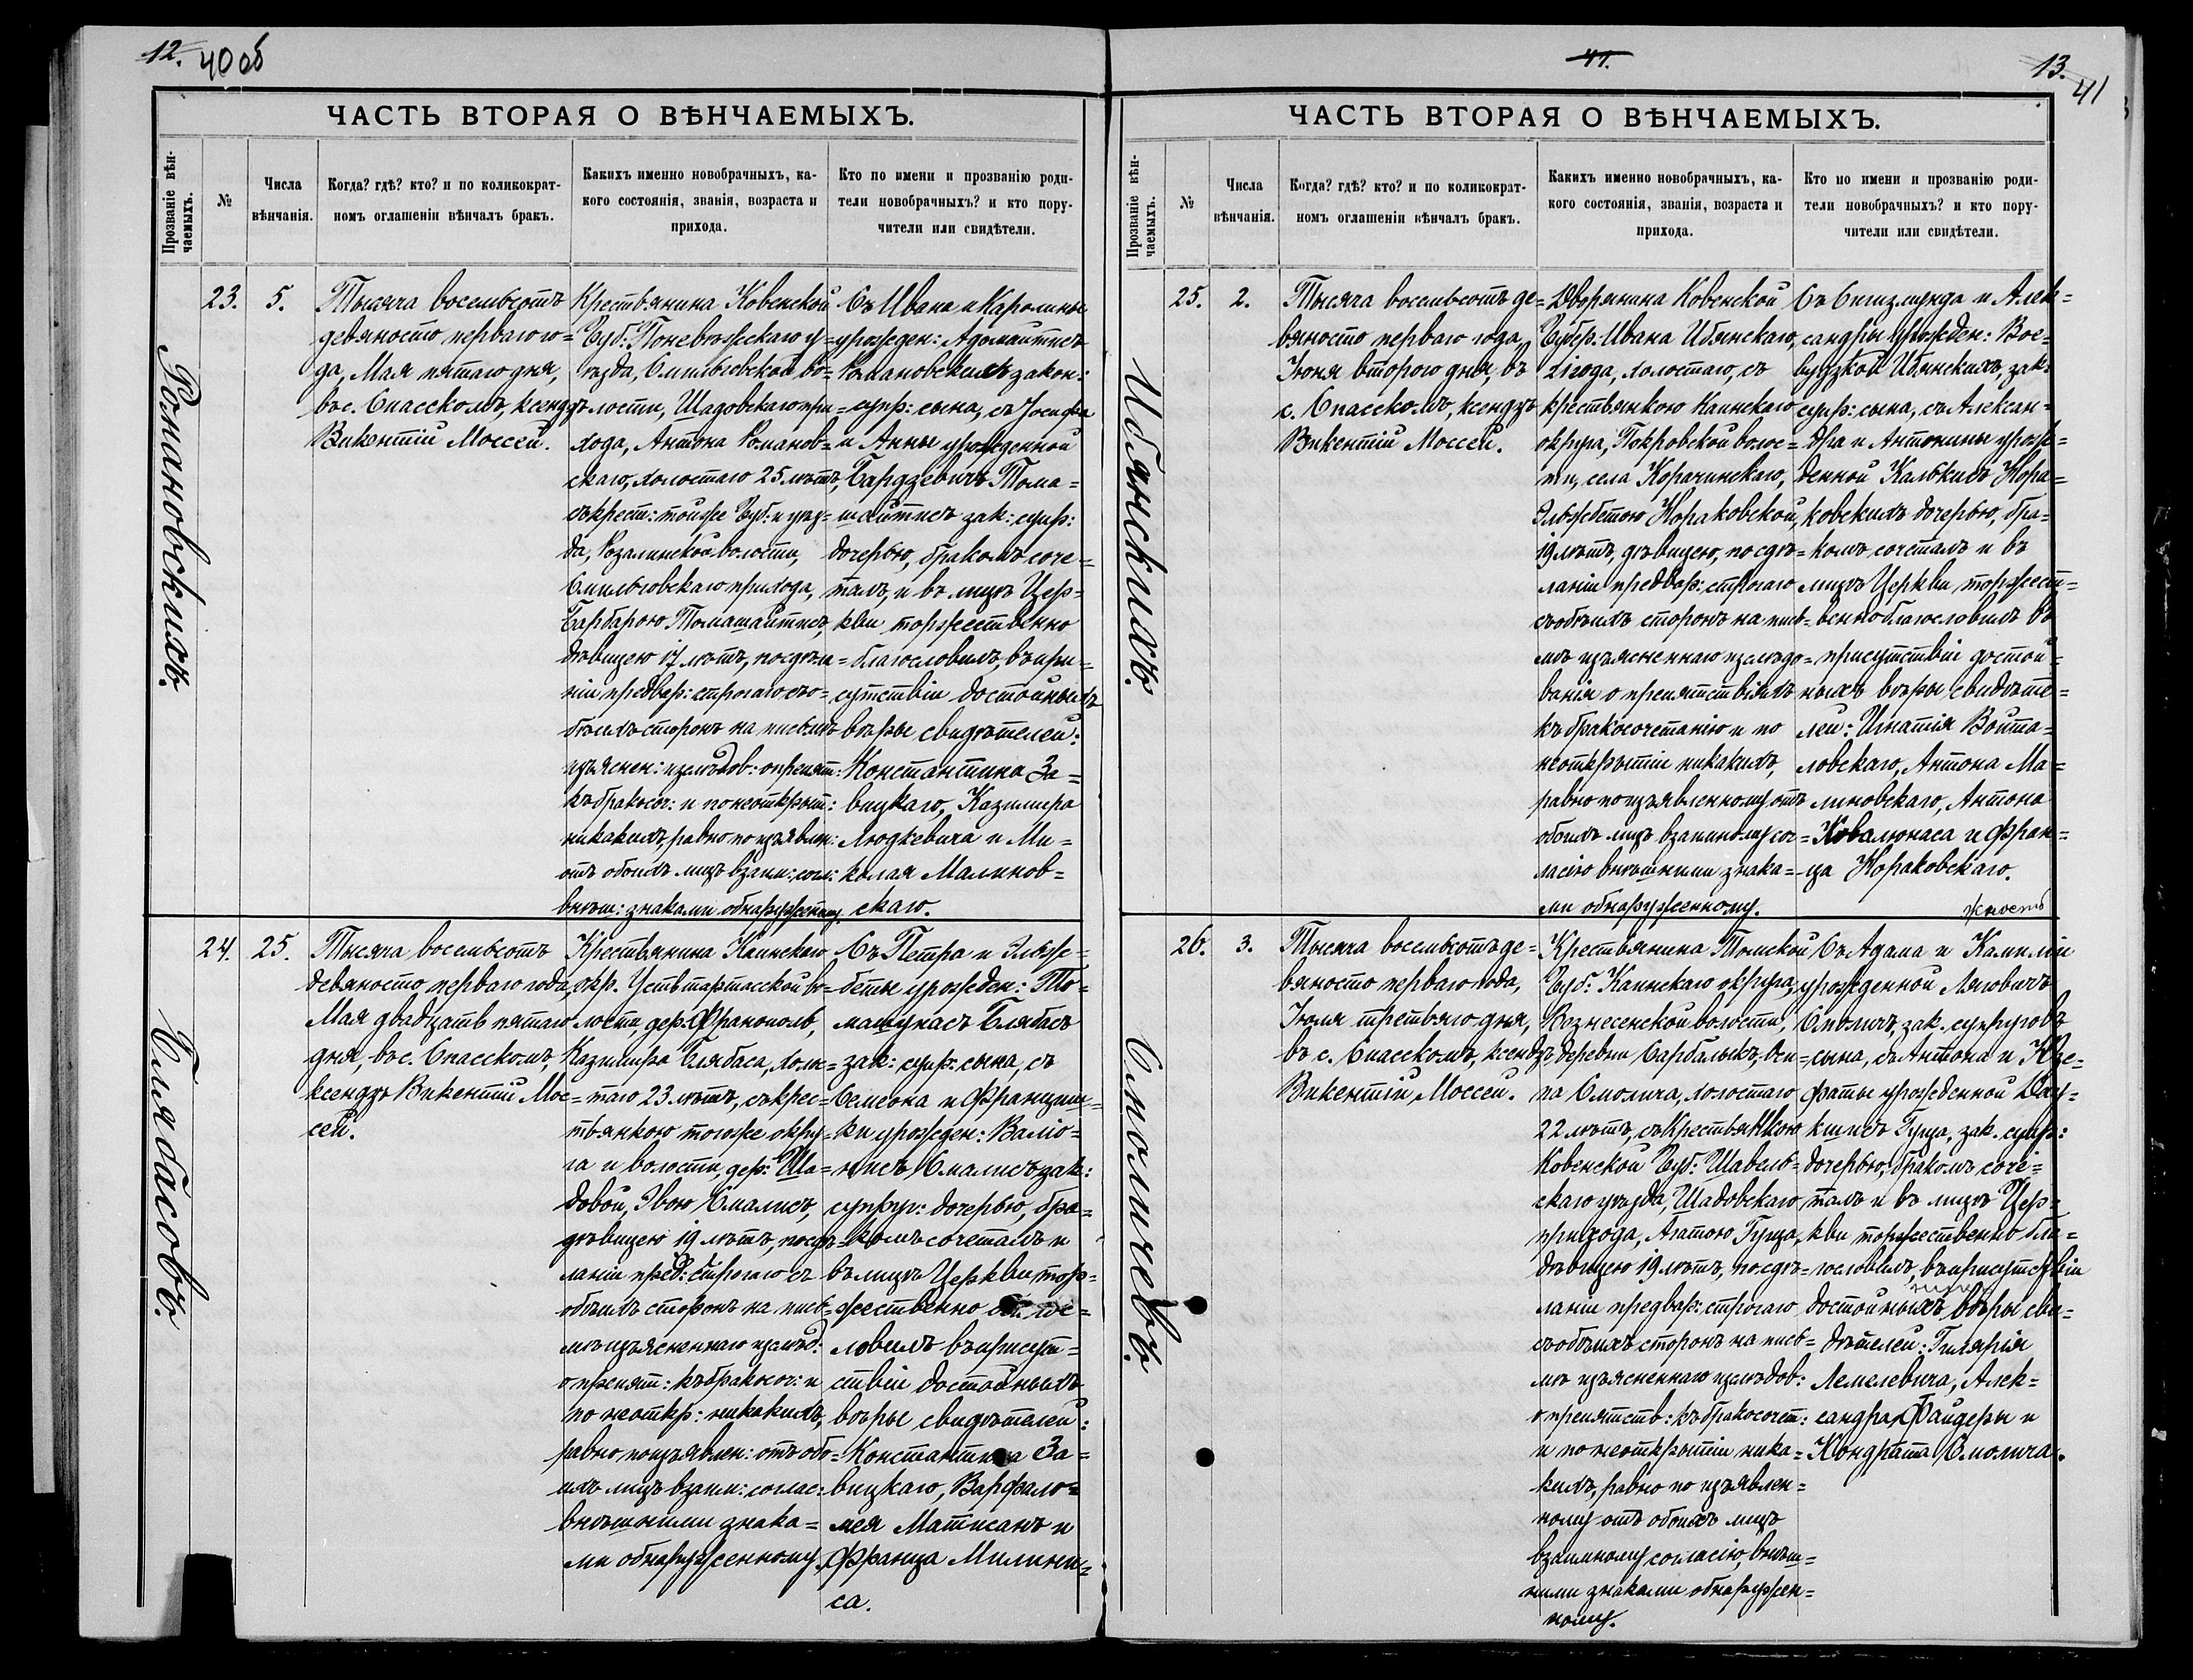 12. 40 об
ЧАСТЬ ВТОРАЯ О ВѢНЧАЕМЫХЪ.
Прозваніе вѣн-
чаемыхъ.
№
Числа
вѣнчанія.
Когда? гдѣ? кто? и по коликократ-
номъ оглашеніи вѣнчалъ бракъ.
Какихъ именно новобрачныхъ, ка-
кого состоянія, званія, возраста и
прихода.
Кто по имени и прозванію роди-
тели новобрачныхъ? и кто пору-
чители или свидѣтели.
Романовскихъ.
23. 5.
Тысяча восемьсотъ
девяносто перваго го=
да, Мая пятаго дня,
въ с. Спасскомъ, ксендзъ
Викентій Моссей.
Крестьянина Ковенской
Губ: Поневѣжскаго у=
ѣзда, Смильгевской во=
лости, Шадовскаго при=
хода, Антона Романов=
скаго, холостаго 25 лѣтъ,
съ крест: тойже Губ: и уѣз=
да, Розалинской волости,
Смильговскаго прихода,
Барбарою Томашайтисъ,
дѣвицею 17 лѣтъ, по сдѣла=
ніи предвар: строгаго съ о=
бѣихъ сторонъ на письмѣ
изъяснен: изслѣдов: о препят:
къ бракосоч: и по неоткрыт:
никакихъ, равно по изъявлен:
отъ обоихъ лицъ взаим: согл:
внѣш: знаками обнаруженному.
Съ Ивана и Каролины
урожден: Адомайтисъ
Романовскихъ закон:
супр: сына, съ Іосифа
и Анны урожденной
Бардзевичъ Тома=
шайтисъ зак: супр:
дочерью, бракомъ соче=
талъ, и въ лицѣ Цер=
кви торжественно
благословилъ, въ при=
сутствіи достойныхъ
вѣры свидѣтелей:
Константина За=
вицкаго, Казимира
Людкевича и Ми=
колая Малинов=
скаго.
Блябасовъ.
24. 25.
Тысяча восемьсотъ
девяносто перваго года,
Мая двадцать пятаго
дня, въ с. Спасскомъ,
ксендзъ Викентій Мос=
сей.
Крестьянина Каинскаго
окр. Усть тартасской во=
лости, дер. Франополь,
Казимира Блябаса, холос=
таго 23 лѣтъ, съ крес=
тьянкою тогоже окру=
га и волости, дер: Ша=
довой, Эвою Смалисъ,
дѣвицею 19 лѣтъ, по сдѣ=
ланіи пред: строгаго съ
обѣихъ сторонъ на пись=
мѣ изъясненнаго изслѣд:
о препят: къ бракосоч: и
по неоткр: никакихъ,
равно по изъявлен: отъ обо=
ихъ лицъ взаим: соглас:
внѣшними знака=
ми обнаруженному.
Съ Петра и Эльже=
беты урожден: То=
машунасъ Блябасъ
зак: супр: сына, съ
Семеона и Франциш=
ки урожден: Валю=
нисъ Смалисъ зак:
супруг: дочерью, бра=
комъ сочеталъ и
въ лицѣ Церкви тор=
жественно
ловилъ въ присут=
ствіи достойныхъ
вѣры свидѣтелей:
Константина За=
вицкаго, Варфоло=
мея Матисанъ и
Франца Милини=
са.
41.
13.
41
ЧАСТЬ ВТОРАЯ О ВѢНЧАЕМЫХЪ.
Прозваніе вѣн-
чаемыхъ.
№
Числа
вѣнчанія.
Когда? гдѣ? кто? и по коликократ-
номъ оглашеніи вѣнчалъ бракъ.
Какихъ именно новобрачныхъ, ка-
кого состоянія, званія, возраста и
прихода.
Кто по имени и прозванію роди-
тели новобрачныхъ? и кто пору-
чители или свидѣтели.
Ибянскихъ.
25. 2.
Тысяча восемьсотъ де=
вяносто перваго года,
Іюня второго дня, въ
с. Спасскомъ, ксендзъ
Викентій Моссей.
Дворянина Ковенской
Губер. Ивана Ибянскаго,
21 года, холостаго, съ
крестьянкою Каинскаго
округа, Покровской волос=
ти, села Корачинскаго,
Эльжбетою Нораковской,
19 лѣтъ, дѣвицею, по сдѣ=
ланіи предвар: строгаго
съ обѣихъ сторонъ на пись=
мѣ изъясненнаго изслѣдо=
ванія о препятствіяхъ
къ бракосочетанію и по
неоткрытіи никакихъ,
равно по изъявленному отъ
обоихъ лицъ взаимному сог=
ласію внѣшними знака=
ми обнаруженному.
Съ Сигизмунда и Алек=
сандры урожден: Вое=
вудзкой Ибянскихъ, зак:
супр: сына, съ Алексан=
дра и Антонины урож=
денной Калькисъ Нора=
ковскихъ дочерью, бра=
комъ сочеталъ и въ
лицѣ Церкви торжест=
венно благословилъ въ
присутствіи достой=
ныхъ вѣры свидѣте=
лей: Игнатія Войта=
ловскаго, Антона Ма=
линовскаго, Антона
Ковалюнаса и Фран=
ца Нораковскаго.
Смоличевъ.
26. 3.
Тысяча восемьсотъ де=
вяносто перваго года,
Іюля третьяго дня,
въ с. Спасскомъ, ксендзъ
Викентій Моссей.
Крестьянина Томской
Губ: Каинскаго округа,
Вознесенской волости,
деревни Сарбалыкъ, Оси=
па Смолича, холостаго
22 лѣтъ, съ крестьянкою
Ковенской Губ: Шавель=
скаго уѣзда, Шадовскаго
прихода, Агатою Груца,
дѣвицею 19 лѣтъ, по сдѣ=
ланіи предвар: строгаго
съ обѣихъ сторонъ на пись=
мѣ изъясненнаго изслѣдов:
о препятств: къ бракосочет:
и по неоткрытіи ника=
кихъ, равно по изъявлен=
ному отъ обоихъ лицъ
взаимному согласію, внѣш=
ними знаками обнаружен=
ному.
Съ Адама и Камиліи
урожденной Ляховичъ
Смоличъ, зак. супруговъ
сына, съ Антона и Юзе=
фаты урожденной Дау=
кшисъ Груца, зак. супр:
дочерью, бракомъ соче=
талъ и въ лицѣ Цер=
кви торжественно бла=
гословилъ, въ присутствіи
достойныхъ вѣры сви=
дѣтелей: Гилярія
Лемелевича, Алек=
сандра Файдеры и
Кондрата Смолича.